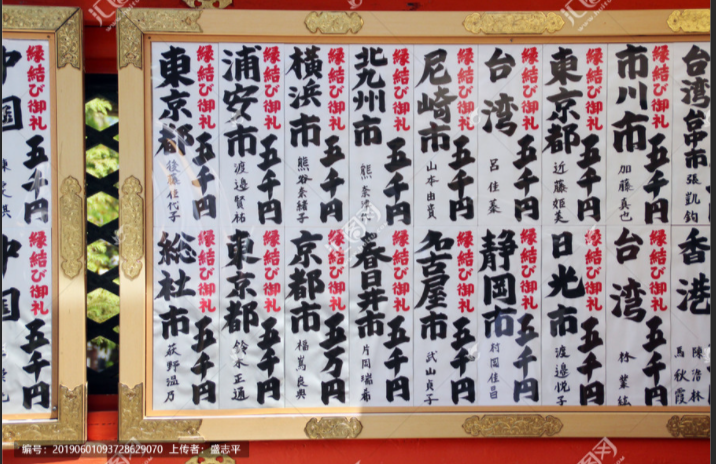 台湾台中市
張凱鈞
縁結び御礼
五千円
市川市
加藤真也
縁結び御礼
五千円
東京都
縁結び御礼
五千円
台湾
縁結び御礼
五千円
尼崎市
山本由貴
縁結び御礼
五千円
北九州市
縁結び御礼
五千円
横浜市
縁結び御礼
五千円
浦安市
渡邉賢祐
縁結び御礼
五千円
東京都
後藤佳代子
香港
陳浩林
馬秋霞
縁結び御礼
五千円
台湾
縁結び御礼
五千円
日光市
渡邉悦子
縁結び御礼
五千円
静岡市
縁結び御礼
五千円
名古屋市
武山貞子
縁結び御礼
五千円
春日井市
片岡瑞希
縁結び御礼
五万円
京都市
福嶌良典
縁結び御礼
五千円
東京都
鈴木正通
縁結び御礼
五千円
総社市
荻野温乃
縁結び御礼
五千円
中国
縁結び御礼
五千円
中国
编号:20190601093728629070 上传者：盛志平